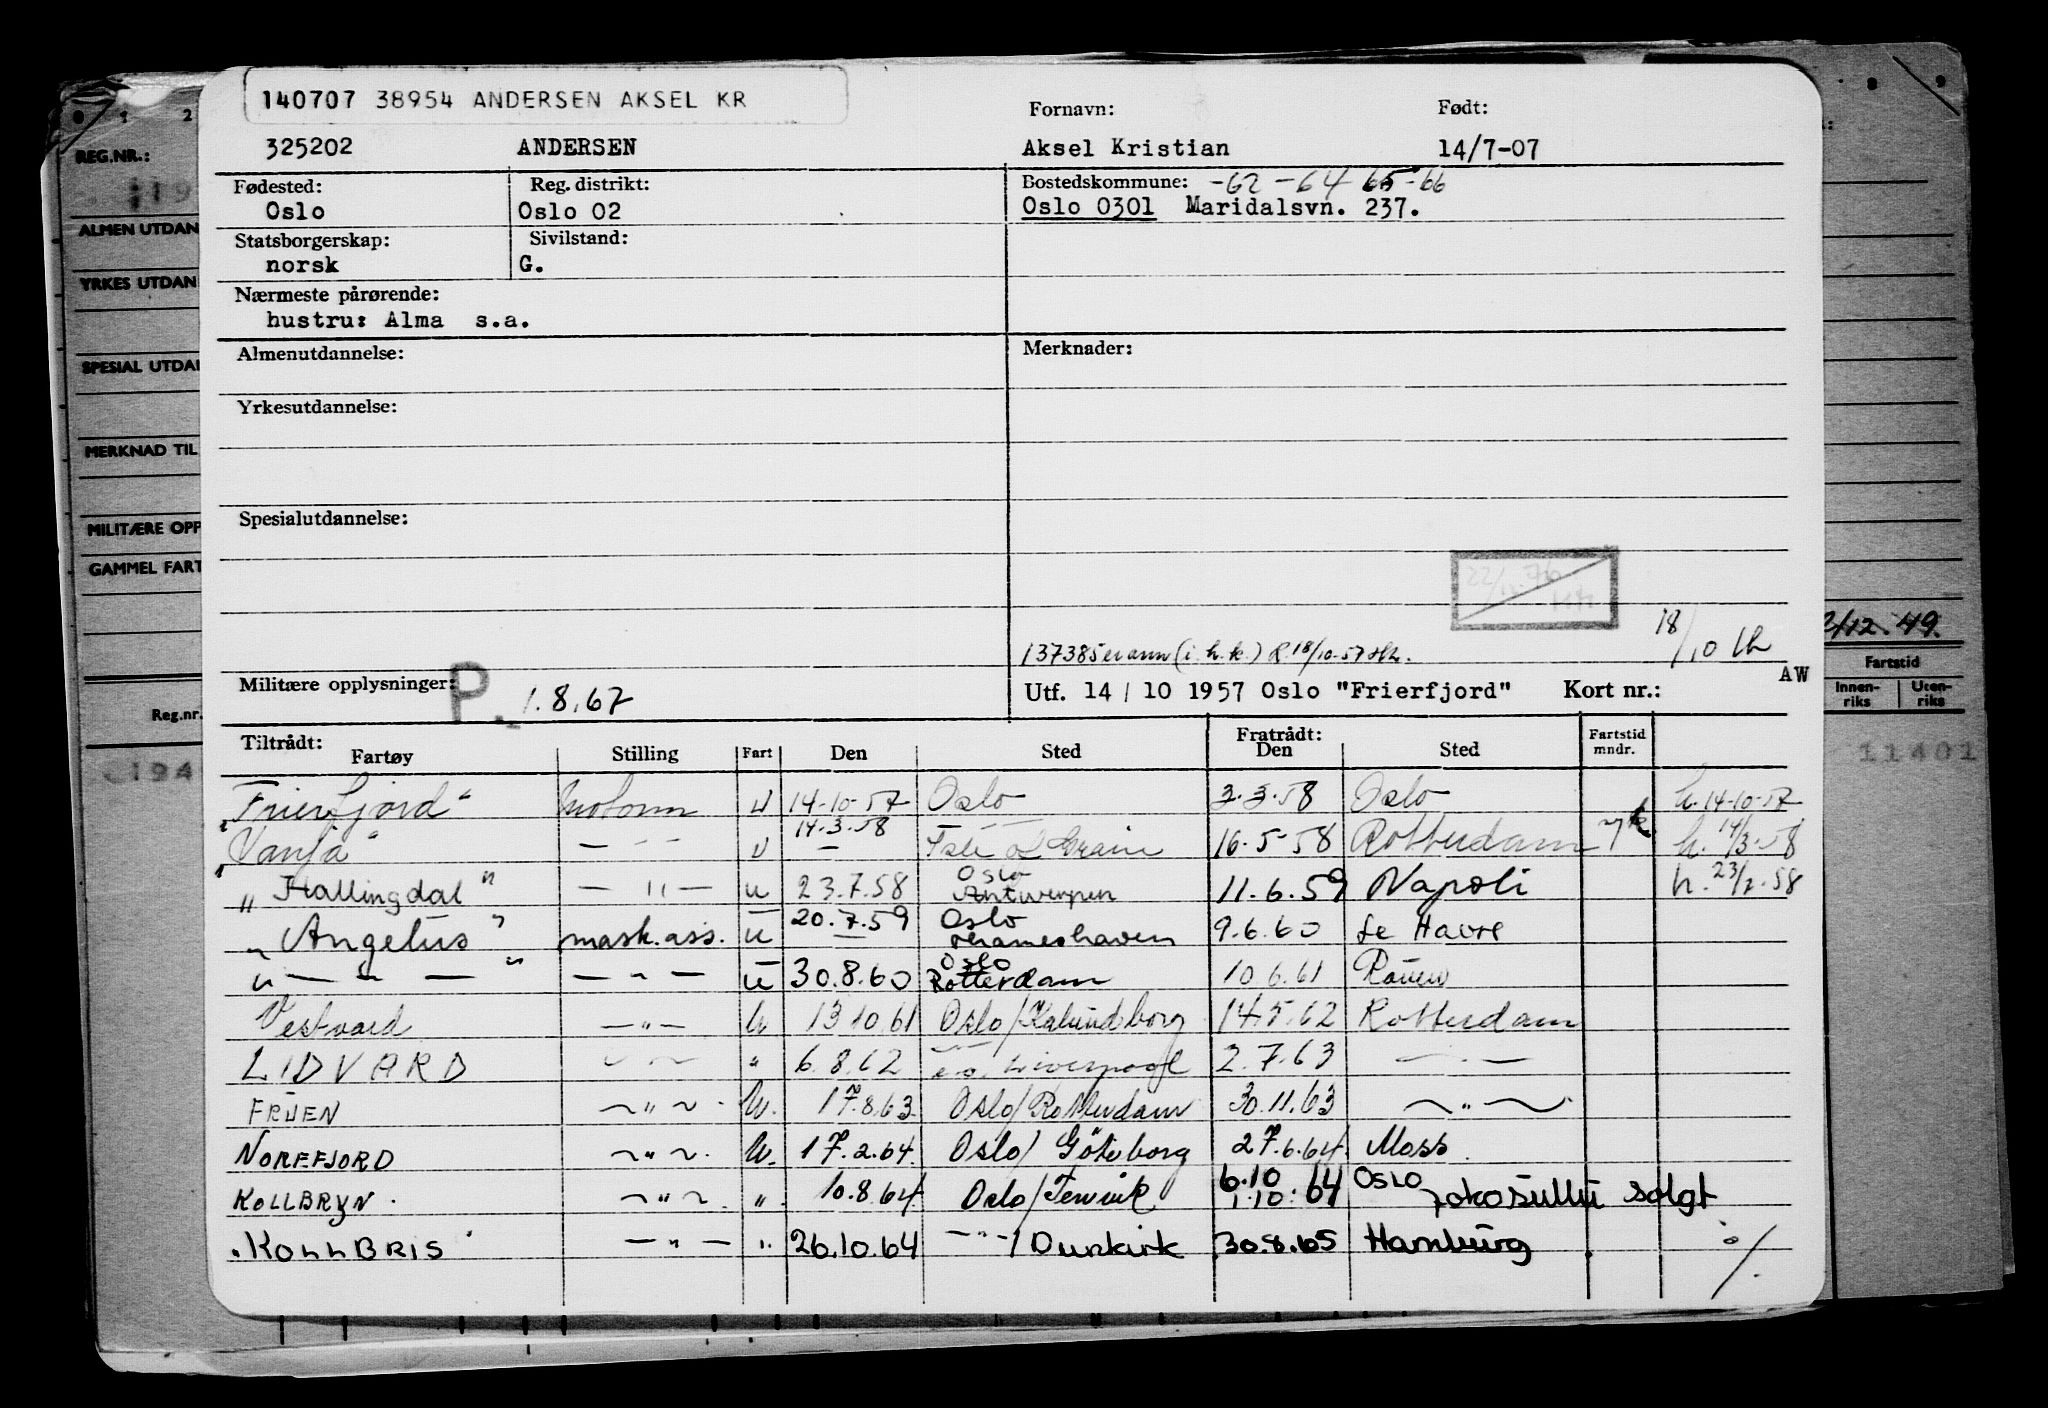 140707 38954 ANDERSEN AKSEL KR
Fornavn: Født:
325202 ANDERSEN Aksel Kristian 14/7-07
Fødested: Reg. distrikt: Bostedskommune: -62 -64 65-66
Oslo Oslo 02 Oslo 0301 Maridalsvn. 237.
Statsborgerskap: Sivilstand:
norsk G.
Nærmeste pårørende:
hustru: Alma s.a.
Almenutdannelse: Merknader:
Yrkesutdannelse:
Spesialutdannelse:
18/10
Militære opplysninger: P. 1.8.67 Utf. 14/10 1957 Oslo "Frierfjord" Kort nr.: AW
Tiltrådt: Fratrådt: Fartstid
Fartøy Stilling Fart Den Sted Den Sted mndr.
"Frierfjord" motorm U 14-10-57 Oslo 3.3.58 Oslo h.14-10-57
14.3.58
"Vanja" — " — U — 16-5-58 Rotterdam h. 14/3-58
Oslo
"Hallingdal" — " — U 23.7.58 Antwerpen 11.6.59 Napoli h. 23/7-58
20.7.59 Oslo
"Angelus" mask.ass. U — Thameshaven 9.6.60 Le Havre
Oslo
" — " — " — " — U 30.8.60 Rotterdam 10.6.61 Rouen
Vestvard — " — U 13.10.61 Oslo/Kalundborg 14.5.62 Rotterdam
LIDVARD — " — " 6.8.62 Liverpool 2.7.63 — " —
FRUEN — " — U. 17.8.63 Oslo/Rotterdam 30.11.63 — " —
NOREFJORD — " — U. 17.2.64 Oslo/Göteborg 27.6.64 Moss
6.10 64 OSLO
KOLLBRYN — " — " 10.8.64 1.10.64 solgt
"KOLLBRIS" — " — " 26.10.64 — " — / Dunkirk 30.8.65 Hamburg %
1 2
REG.NR.:
ALMEN UTDAN
YRKES UTDAN
SPESIAL UTDAN
MERKNAD TIL
MILITÆRE OPP
GAMMEL FART
Reg.nr.
8 9
2/12.49.
Fartstid
Innen-riks Uten-riks
11401